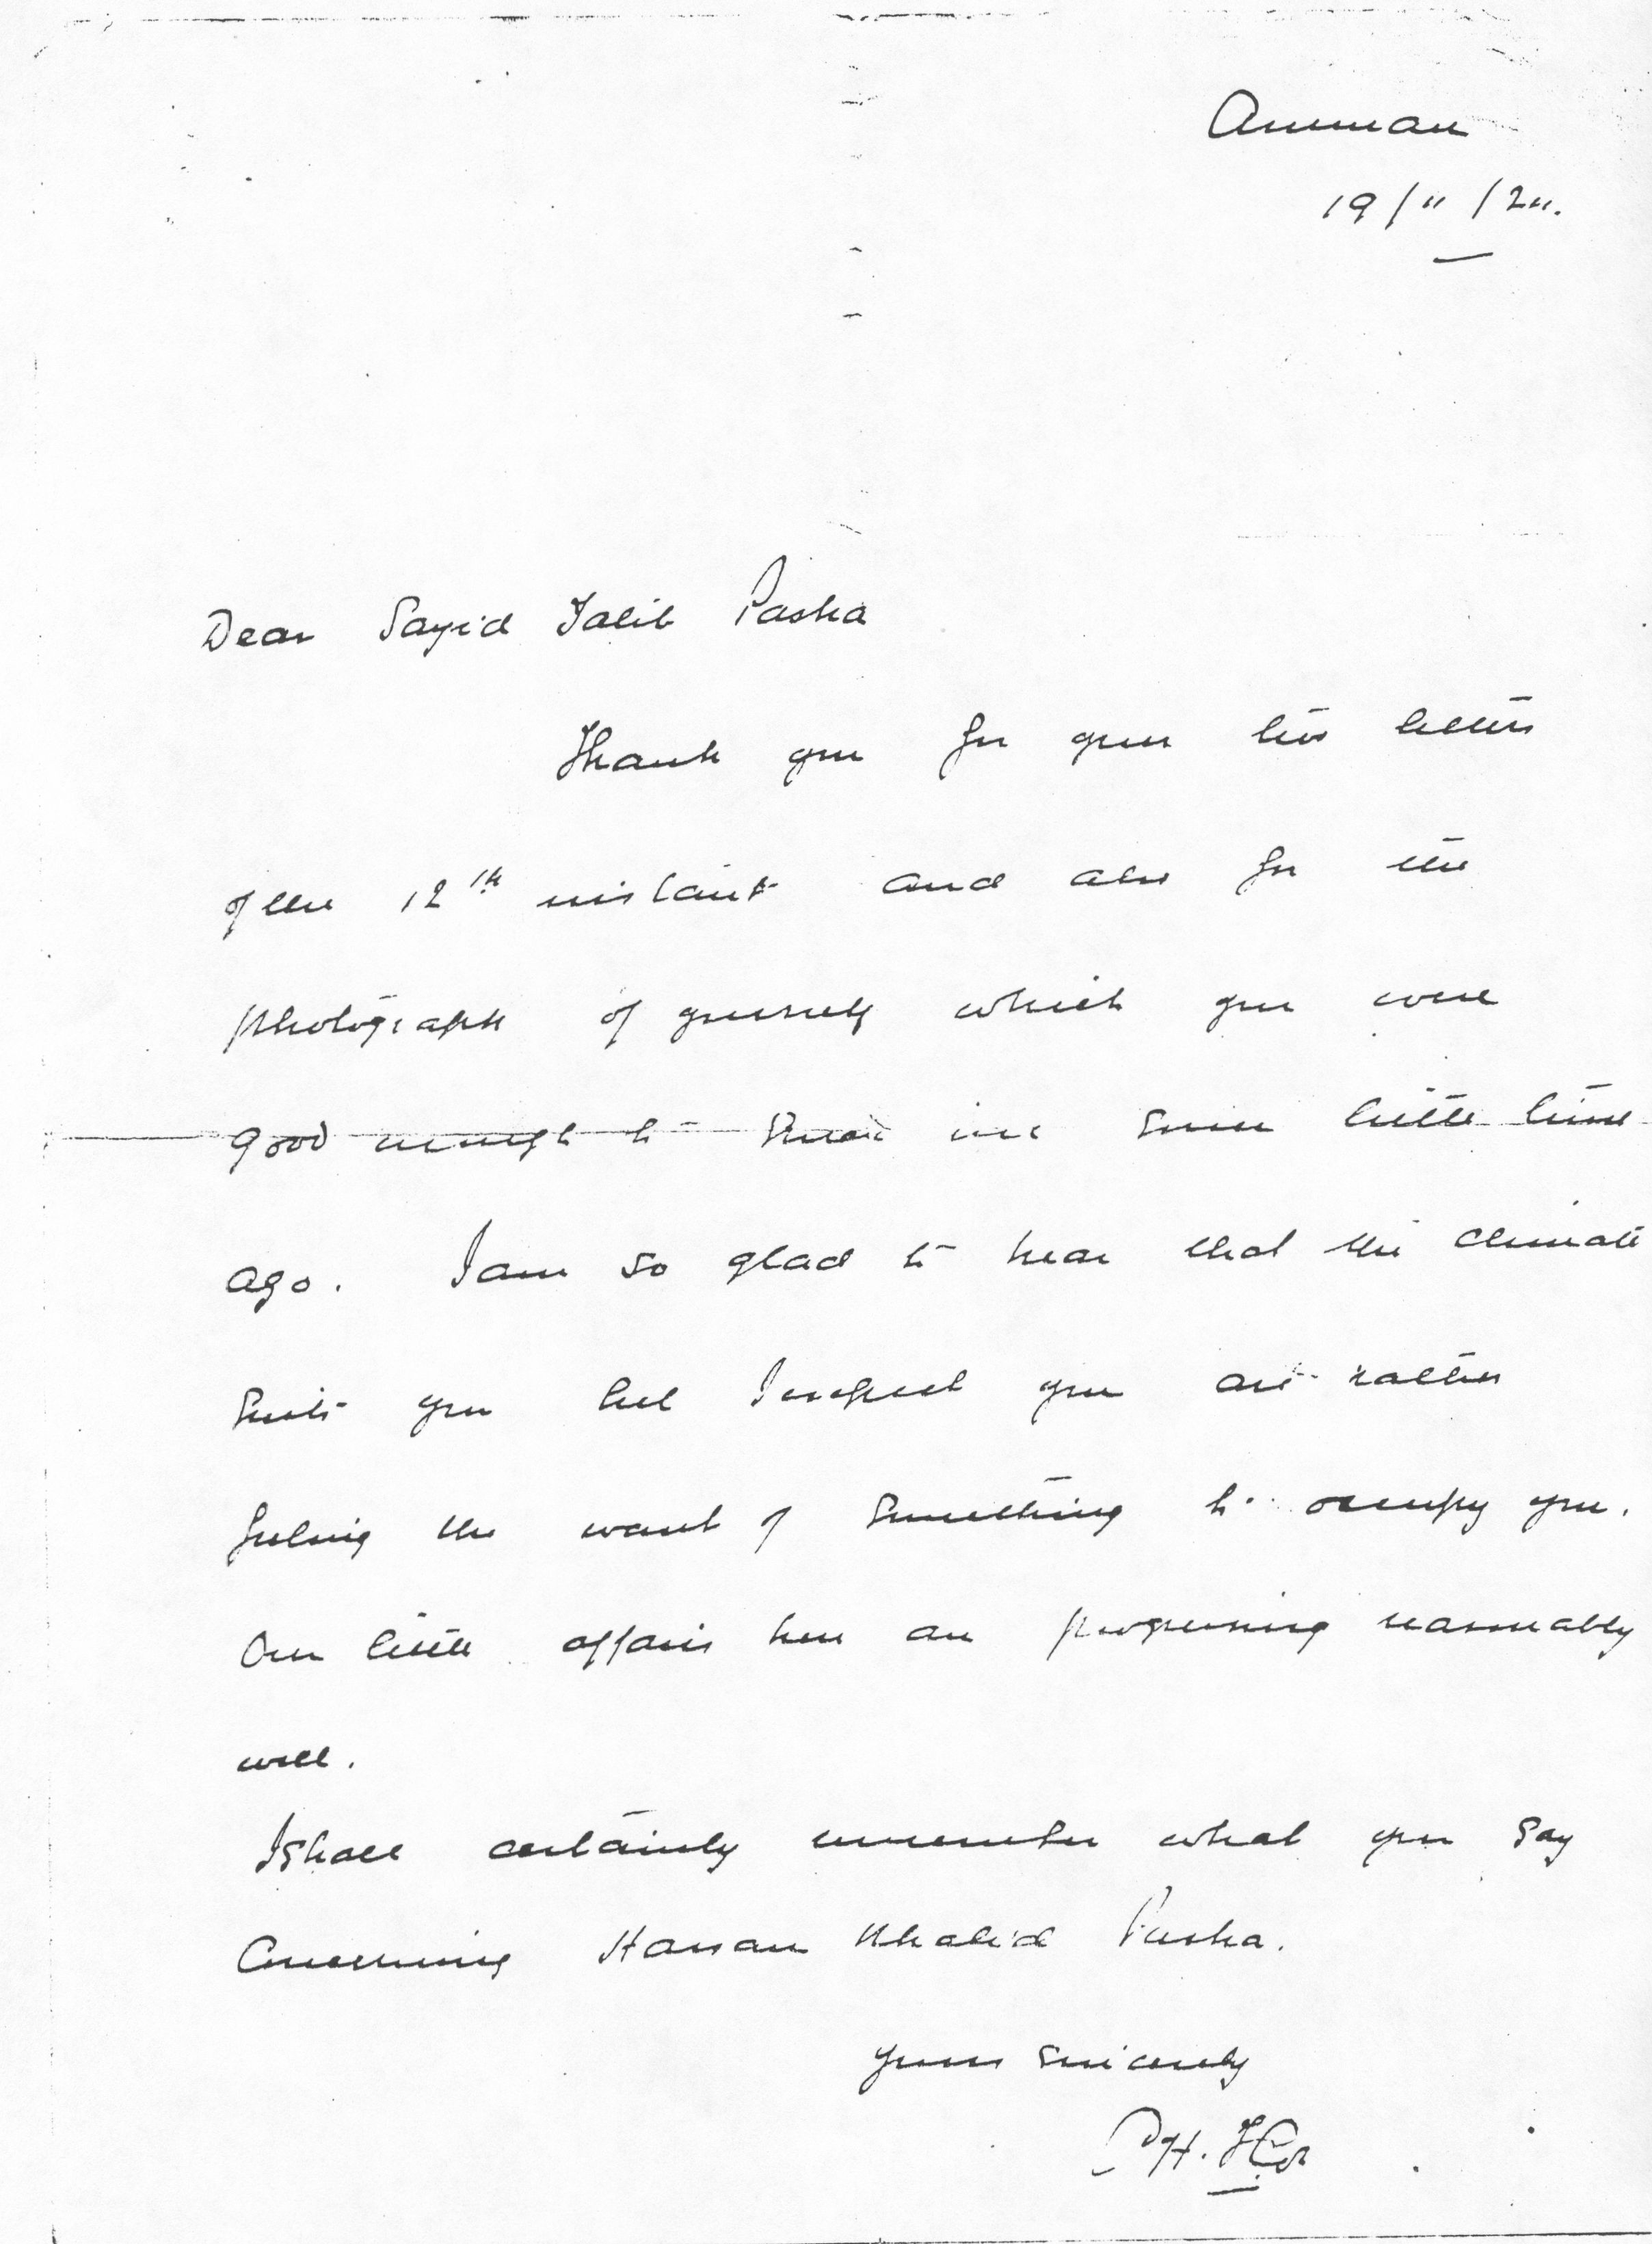 Amman
19/11/24.
Dear Sayid Talib Pasha
Thank you for your two letters
of the 12th instant and also for the
photograph of yourself which you were
good enough to me some little time
ago. I am so glad to hear that the climate
suits you but I suspect you are rather
feeling the want of something to occupy you.
Our little affairs here are progressing reasonably
well.
I shall certainly remember what you say
concerning Hassan Khalid Pasha.
Yours sincerely